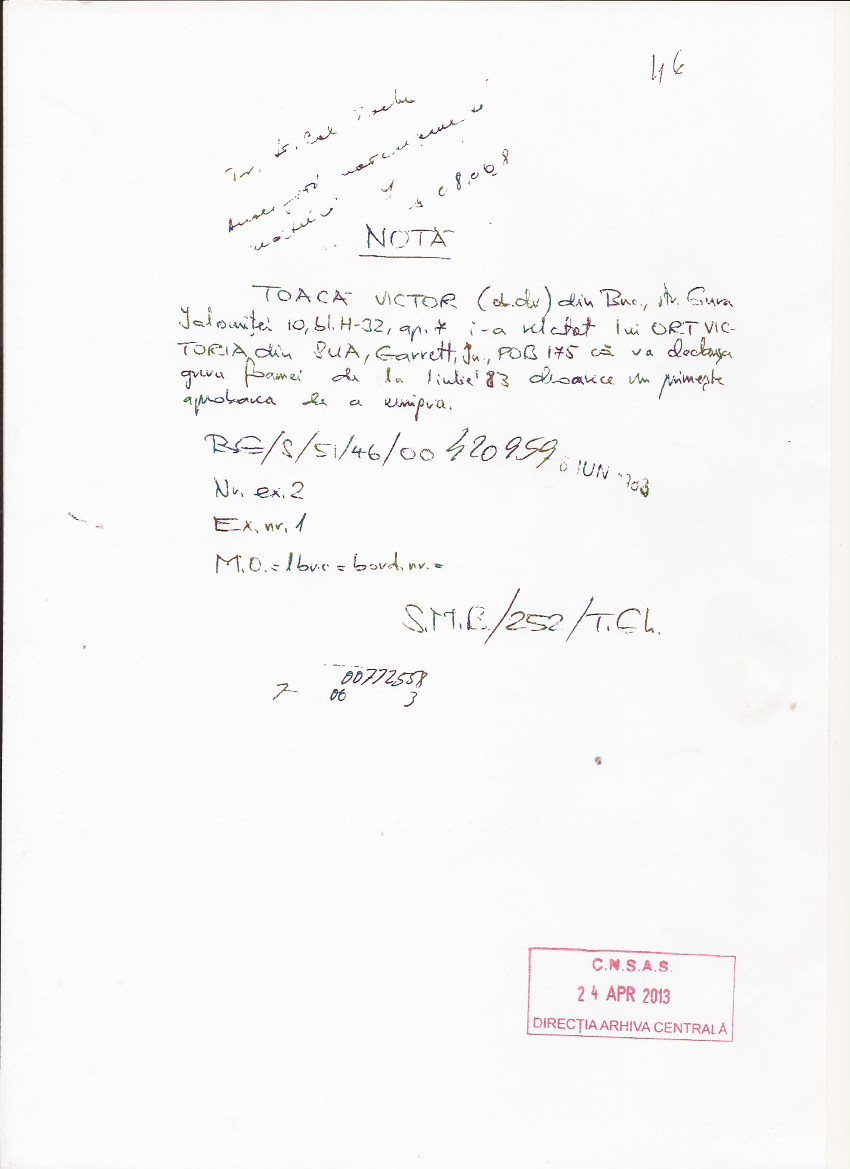 46
08.06.8
NOTĂ
TOACĂ VICTOR din Buc., str. Gura
Ialomiței 10, bl. H-32, ap. 7 i-a relatat lui ORT VIC-
TORIA din SUA, Garrett, In., POB 175 că va declanșa
greva foamei de la 1 iulie '83 deoarece nu primește
aprobarea de a emigra.
BE/S/51/46/00 420959 6 IUN 1983
Nr. ex. 2
Ex. nr. 1
M.O. = 1 buc = bord. nr. =
S.M.B./252/T.Gh.
00772558
00 3
C.N.S.A.S.
24 APR 2013
DIRECȚIA ARHIVA CENTRALĂ